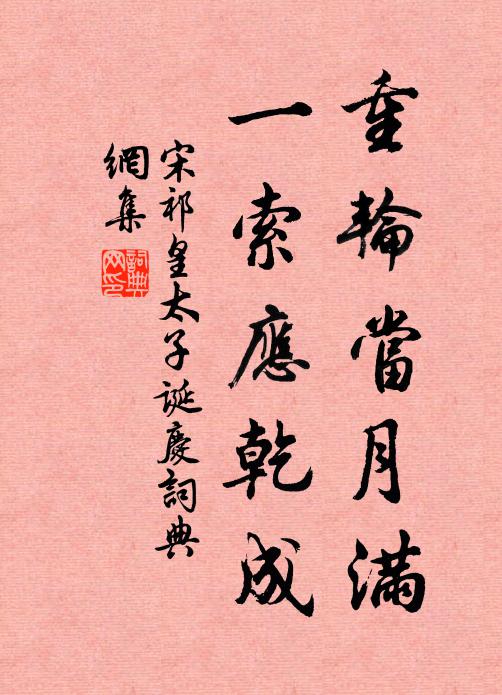 重輪當月滿
一索應乾成
宋祁皇太子誕慶詞典
網集
詞典網印